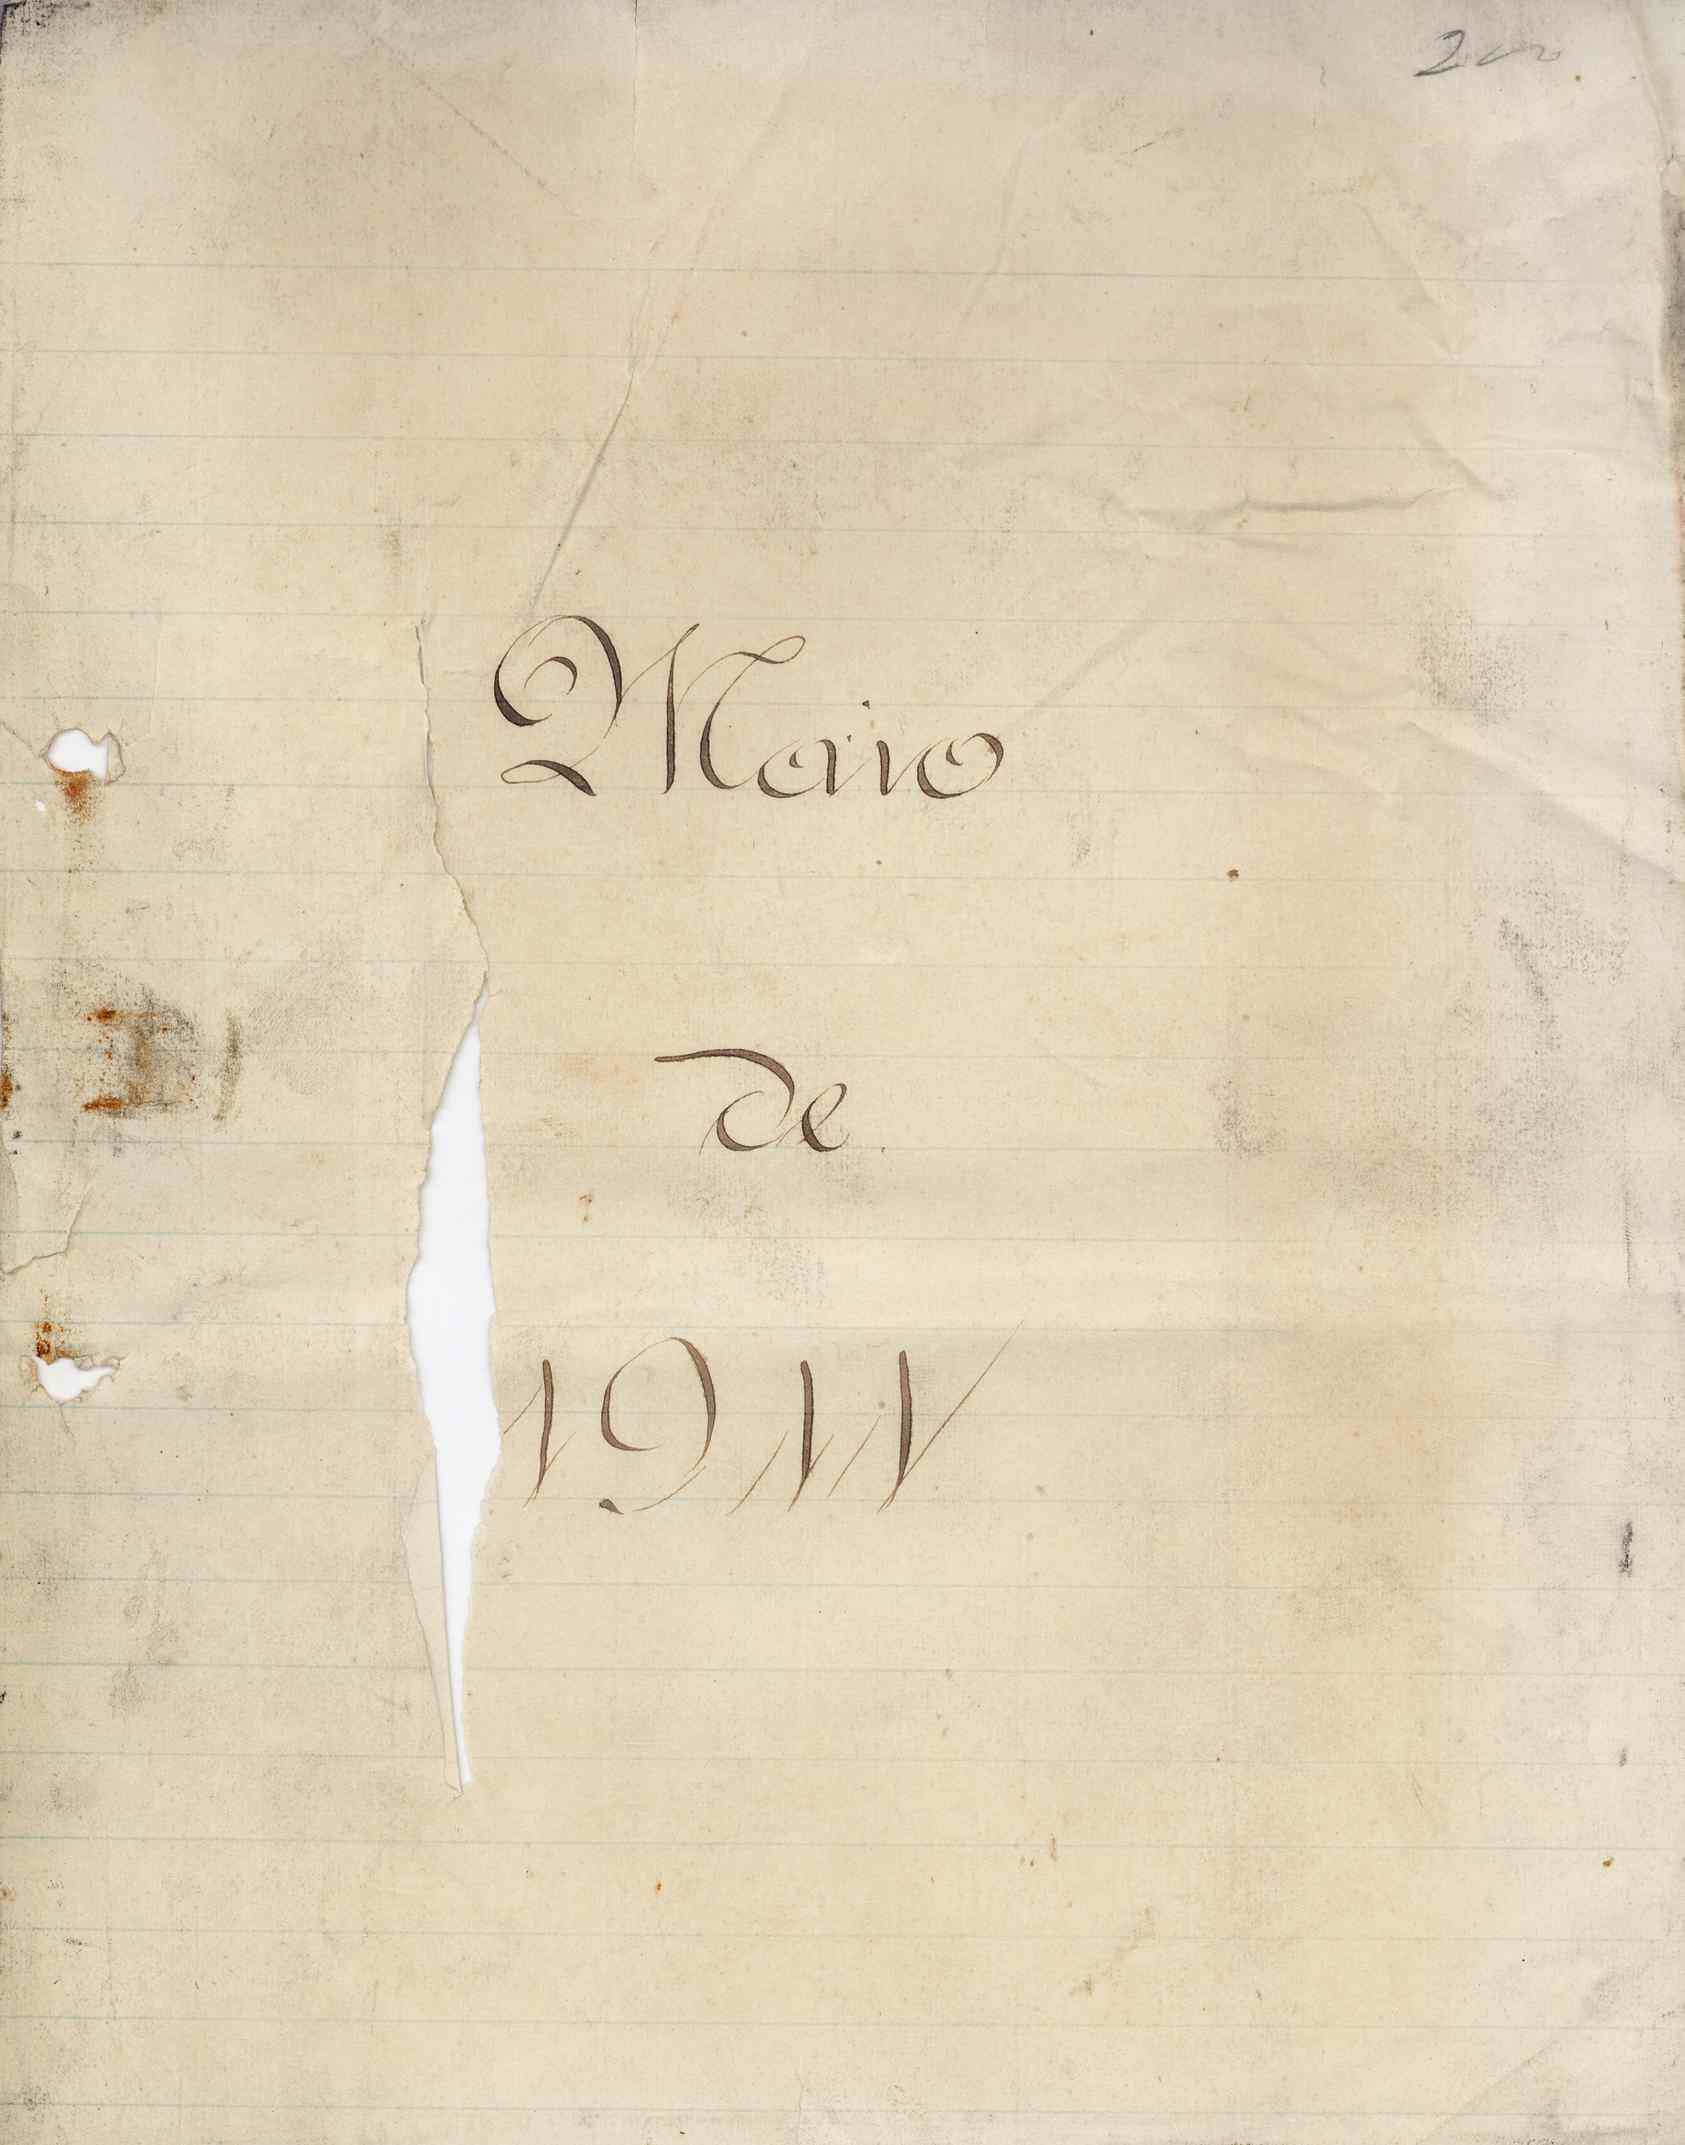 Maio
de
1911